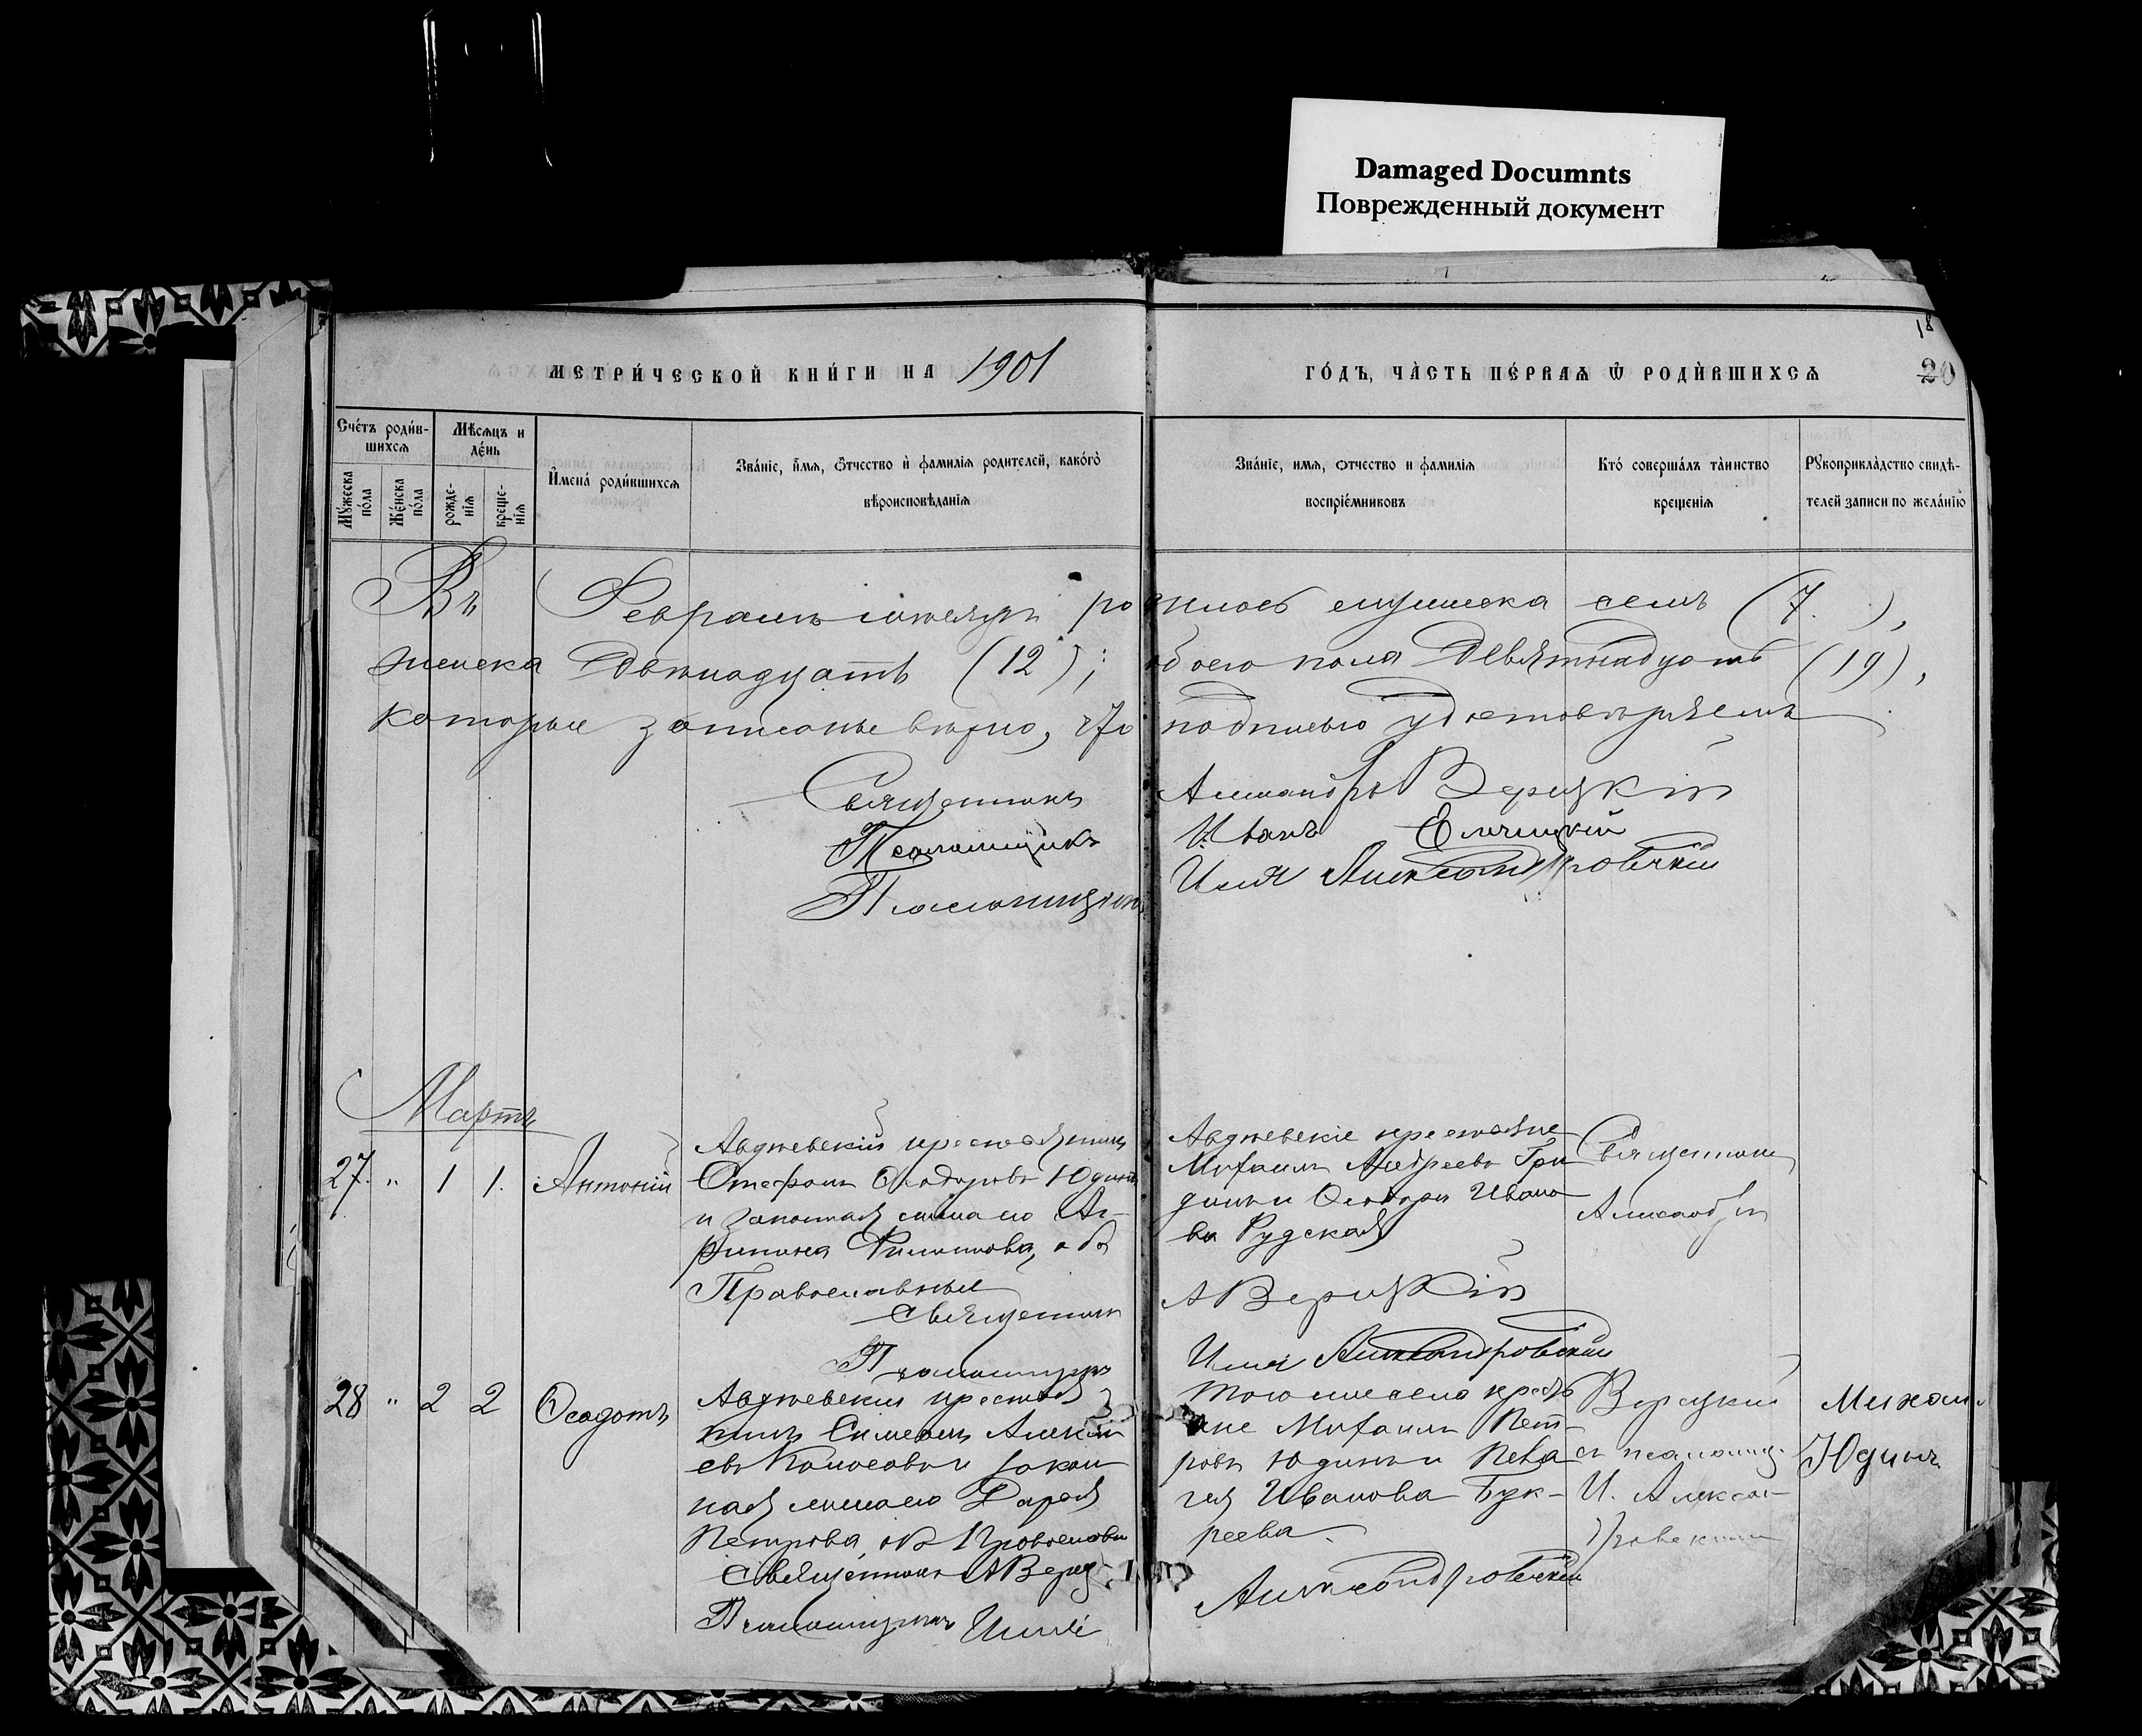 Damaged Documnts
Поврежденный документ
18
20
МЕТРИ́ЧЕСКОЙ КНИ́ГИ НА 1901 ГО́ДЪ, ЧА̀СТЬ ПЕ́РВАЯ Ѿ РОДЍВШИХСЯ
Сче́тъ роди́в-
шихся
Мꙋ́жеска по́ла
Же́нска по́ла
Мѣ́сяцъ и
де́нь
рожде-
нія
креще-
нія
И҆мена́ роди́вшихся
Зва́ніе, и҆́мя, ѻ҆́тчество и҆ фами́лія родителей, како́гѡ
вѣроисповѣданія
Зва́ніе, имя, отчество и фамилія
воспріе́мниковъ
Кто́ соверша́лъ та́инство
крещенія
Рꙋкоприкла̀дство свидѣ-
телей записи по жела́нію
Въ Февралѣ мѣсяцѣ родилось мужеска семь (7.),
женска двѣнадцать (12); обоего пола девятнадцать (19),
которые записаны вѣрно, что подписью удостовѣряемъ
Священникъ Александръ Верицкій
Псаломщикъ Иванъ
Псаломщикъ Илія Александровскій
Мартъ
27. " 1 1. Антоній
Авдѣевскій крестьянинъ
Стефанъ Ѳеодоровъ Юдинъ
и законная жена его Аг-
рипина Филиппова, оба
Православные
Авдѣевскіе крестьяне
Михаилъ Андреевъ Гри
Ѳеодора Ивано
ва Рудская
Священникъ
Александръ
Священникъ АВерицкій
Псаломщикъ Илія Александровскій
28 " 2 2 Ѳеодотъ
Авдѣевскій крестьян
нинъ Симеонъ Алексѣ
евъ и закон
ная жена его Дарья
Петрова, оба Православн
Того же села крестья
не Михаилъ Пет-
ровъ Юдинъ и Пела
гея Иванова Бук-
реева
Верицкій
съ псаломщ.
И. Алексан-
дровскимъ
Михаил
Юдинъ
Священникъ АВериц
Псаломщикъ Илія Александровскій